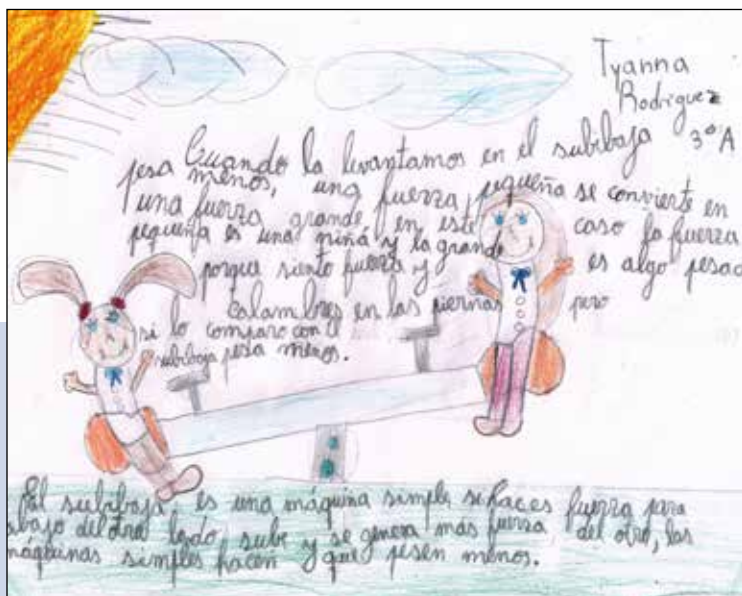 Tyanna
Rodriguez
3º A
Cuando la levantamos en el subibaja
pesa menos, una fuerza pequeña se convierte en
una fuerza grande en este caso la fuerza
pequeña es una niña y la grande es algo pesado
porque siento fuerza y
calambres en las piernas pero
si lo comparo con el
subibaja pesa menos.
El subibaja, es una máquina simple si haces fuerza para
abajo del otro lado sube y se genera más fuerza del otro, las
máquinas simples hacen que pesen menos.